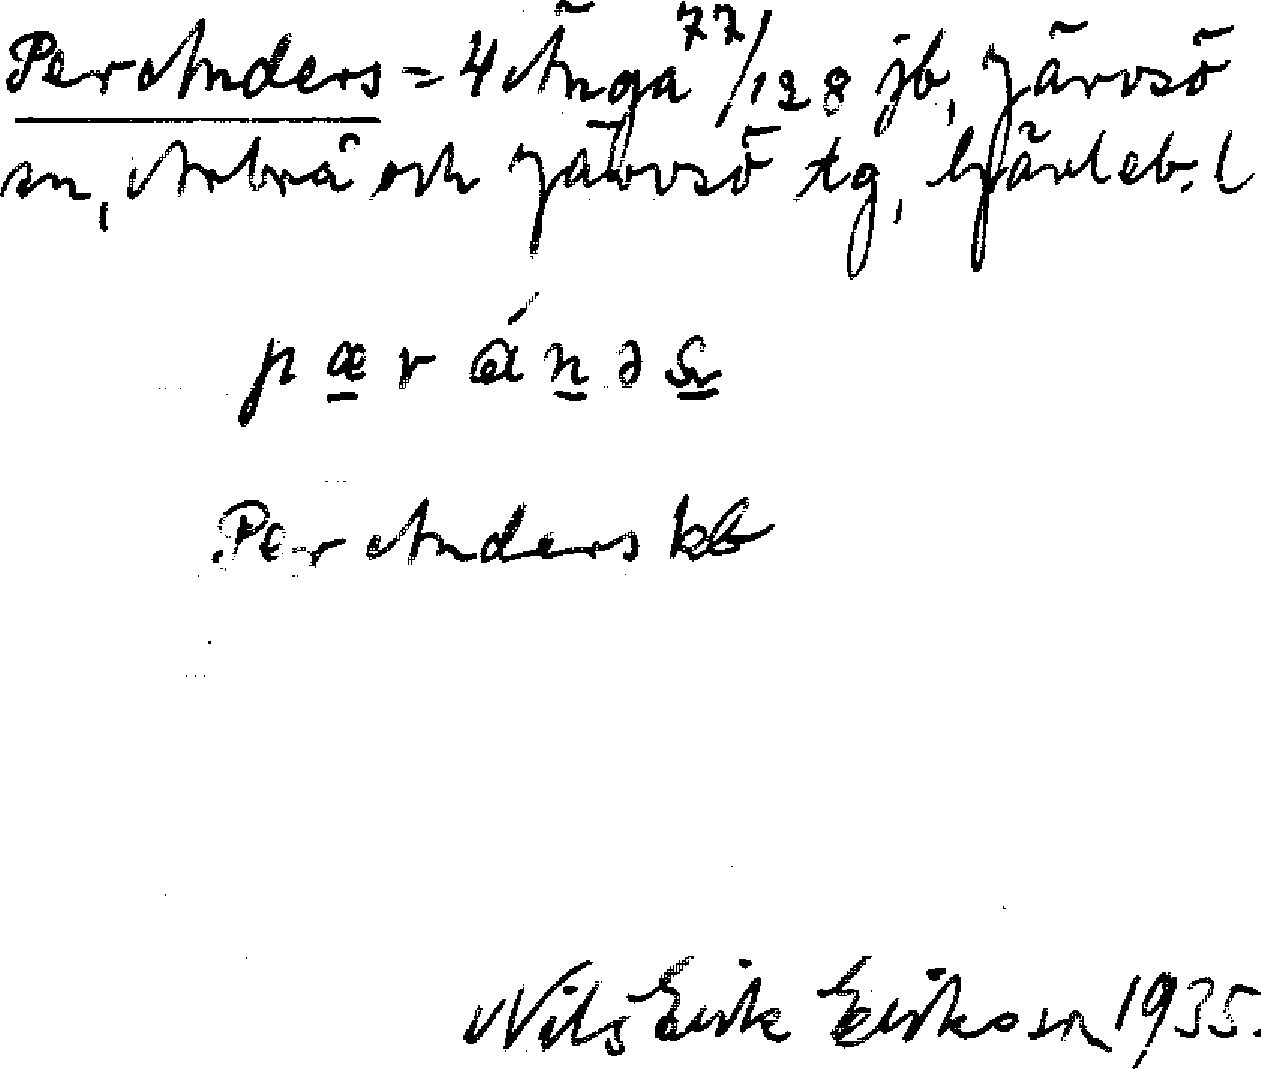 Per Anders = 4 Änga 77/128 jb, Järvsö
sn, Arbrå och Järvsö tg, Gävleb. l
pæránəs
Per Anders kb
Nils Erik Erikson 1935.